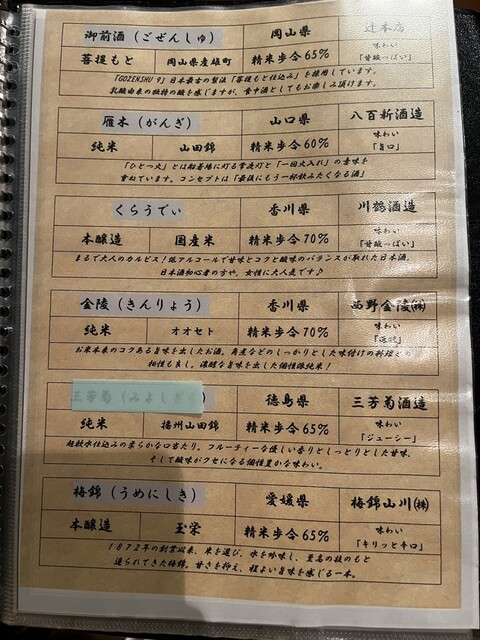 御前酒（ごぜんしゅ） 岡山県 辻本店
菩提もと 岡山県産雄町 精米歩合65% 味わい「甘酸っぱい」
「GOZENSHU 9」日本最古の製法「菩提もと仕込み」を採用しています。
乳酸由来の独特の酸を感じますが、食中酒としてもお楽しみ頂けます。
雁木（がんぎ） 山口県 八百新酒造
純米 山田錦 精米歩合60% 味わい「旨口」
「ひとつ火」とは船着場に灯る常夜灯と「一回火入れ」の意味を
重ねています。コンセプトは「最後にもう一杯飲みたくなる酒」
くらうでぃ 香川県 川鶴酒造
本醸造 国産米 精米歩合70% 味わい「甘酸っぱい」
まるで大人のカルピス！低アルコールで甘味とコクと酸味のバランスが取れた日本酒。
日本酒初心者の方や、女性に大人気です♪
金陵（きんりょう） 香川県 西野金陵㈱
純米 オオセト 精米歩合70% 味わい
お米本来のコクある旨味を出したお酒。角煮などのしっかりとした味付けの料理との
相性も良し。濃醇な旨味を出した個性派純米！
三芳菊（みよしぎく） 徳島県 三芳菊酒造
純米 播州山田錦 精米歩合65% 味わい「ジューシー」
超軟水仕込みの柔らかな口当たり。フルーティーな優しい香りとしっとりとした甘味。
そして酸味がクセになる個性豊かな味わい。
梅錦（うめにしき） 愛媛県 梅錦山川㈱
本醸造 玉栄 精米歩合65% 味わい「キリッと辛口」
1872年の創業以来、米を選び、水を吟味し、至高の技のもと
造られてきた梅錦。甘さを抑え、程よい旨味を感じる一本。